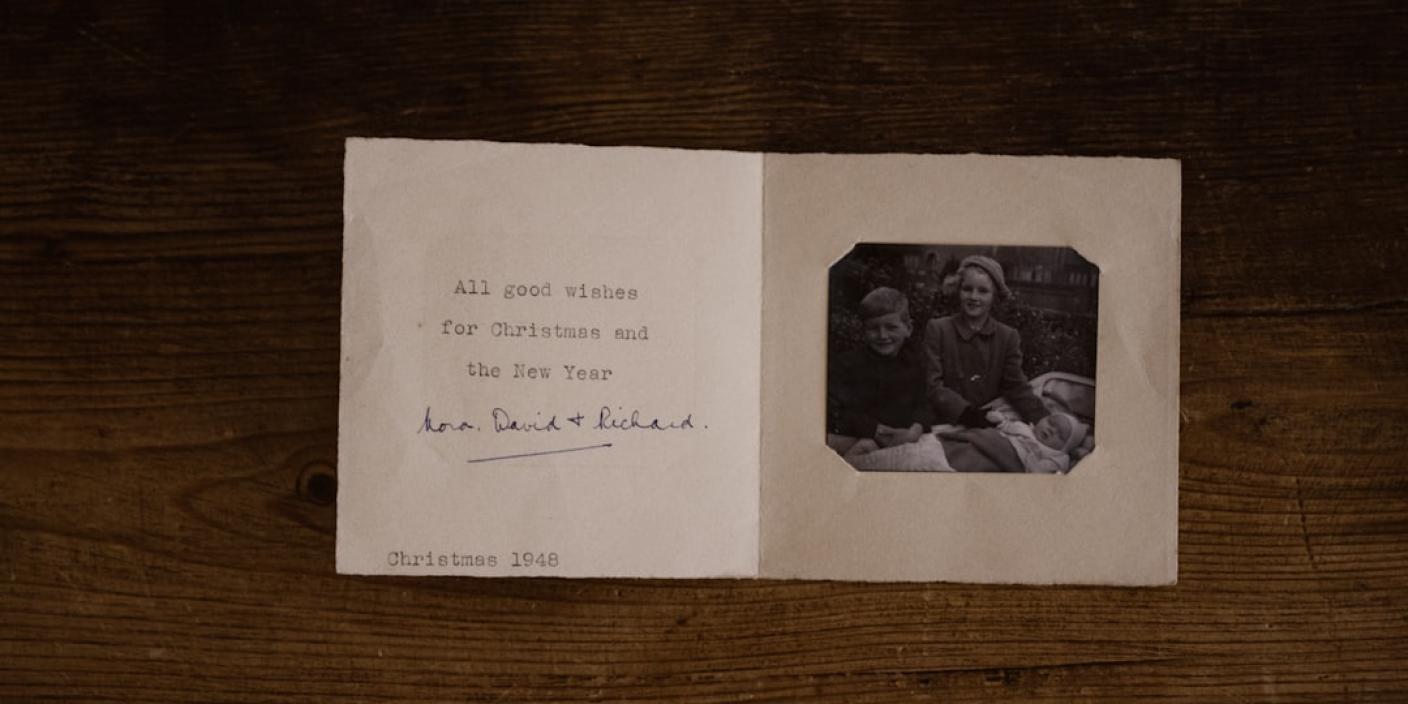 All good wishes
for Christmas and
the New Year
Nora. David + Richard.
Christmas 1948